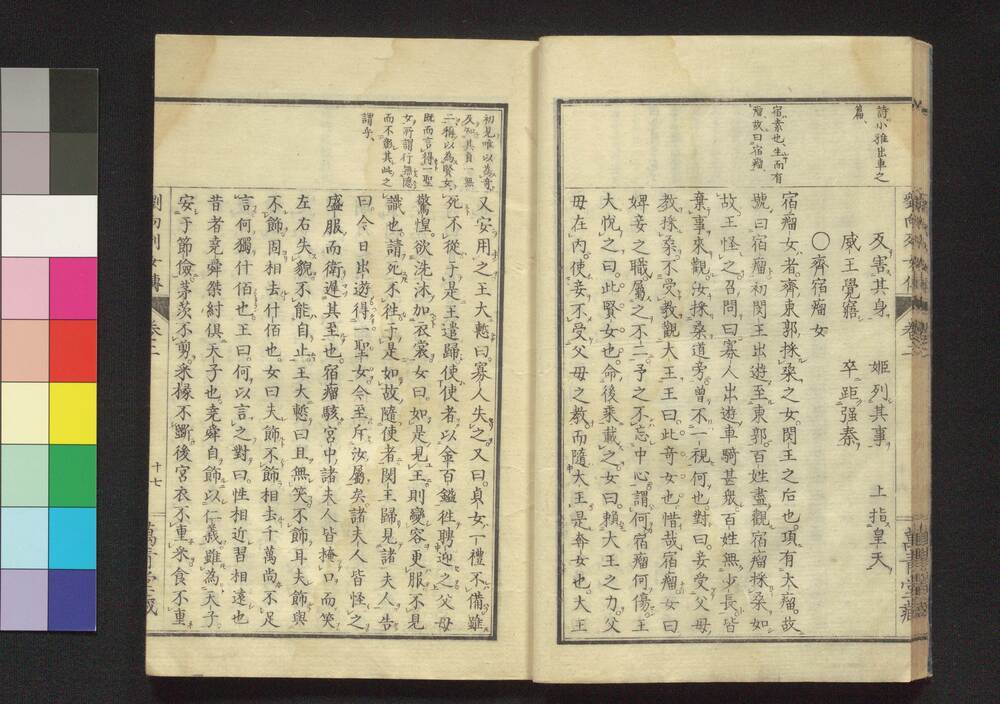 詩小雅出車之
篇
宿素也生而有
瘤故曰宿瘤
反害其身　姬列其事　上指皇天
威王覺寤　卒距强秦
〇齊宿瘤女
宿瘤女者齊東郭採桒之女閔王之后也項有大瘤故
號曰宿瘤初閔王出遊至東郭百姓盡觀宿瘤採桒如
故王怪之召問曰寡人出遊車騎甚衆百姓無少長皆
棄事來觀汝採桒道旁曾不一視何也對曰妾受父母
教採桒不受教觀大王王曰此奇女也惜哉宿瘤女曰
婢妾之職屬之不二予之不忘中心謂何宿瘤何傷王
大悅之曰此賢女也命後乘載之女曰賴大王之力父
母在內使妾不受父母之教而隨大王是奔女也大王
初見唯以為奇
及知其貞一無
二稱以為賢女
既而言得一聖
女所謂行無隱
而不彰其此之
謂乎
又安用之王大慙曰寡人失之又曰貞女一禮不備雖
死不從于是王遣歸使使者以金百鎰徃聘迎之父母
驚惶欲洗沐加衣裳女曰如是見王則變容更服不見
識也請死不徃于是如故隨使者閔王歸見諸夫人告
曰今日出遊得一聖女今至斥汝屬矣諸夫人皆怪之
盛服而衛遲其至也宿瘤駭宮中諸夫人皆掩口而笑
左右失貌不能自止王大慙曰且無笑不飾耳夫飾與
不飾固相去什佰也女曰夫飾不飾相去千萬尚不足
言何獨什佰也王曰何以言之對曰性相近習相遠也
昔者堯舜桀紂俱天子也堯舜自飾以仁義雖為天子
安于節儉茅茨不剪釆椽不斵後宮衣不重釆食不重
劉向列女傳　卷之二　十七　萬青堂藏